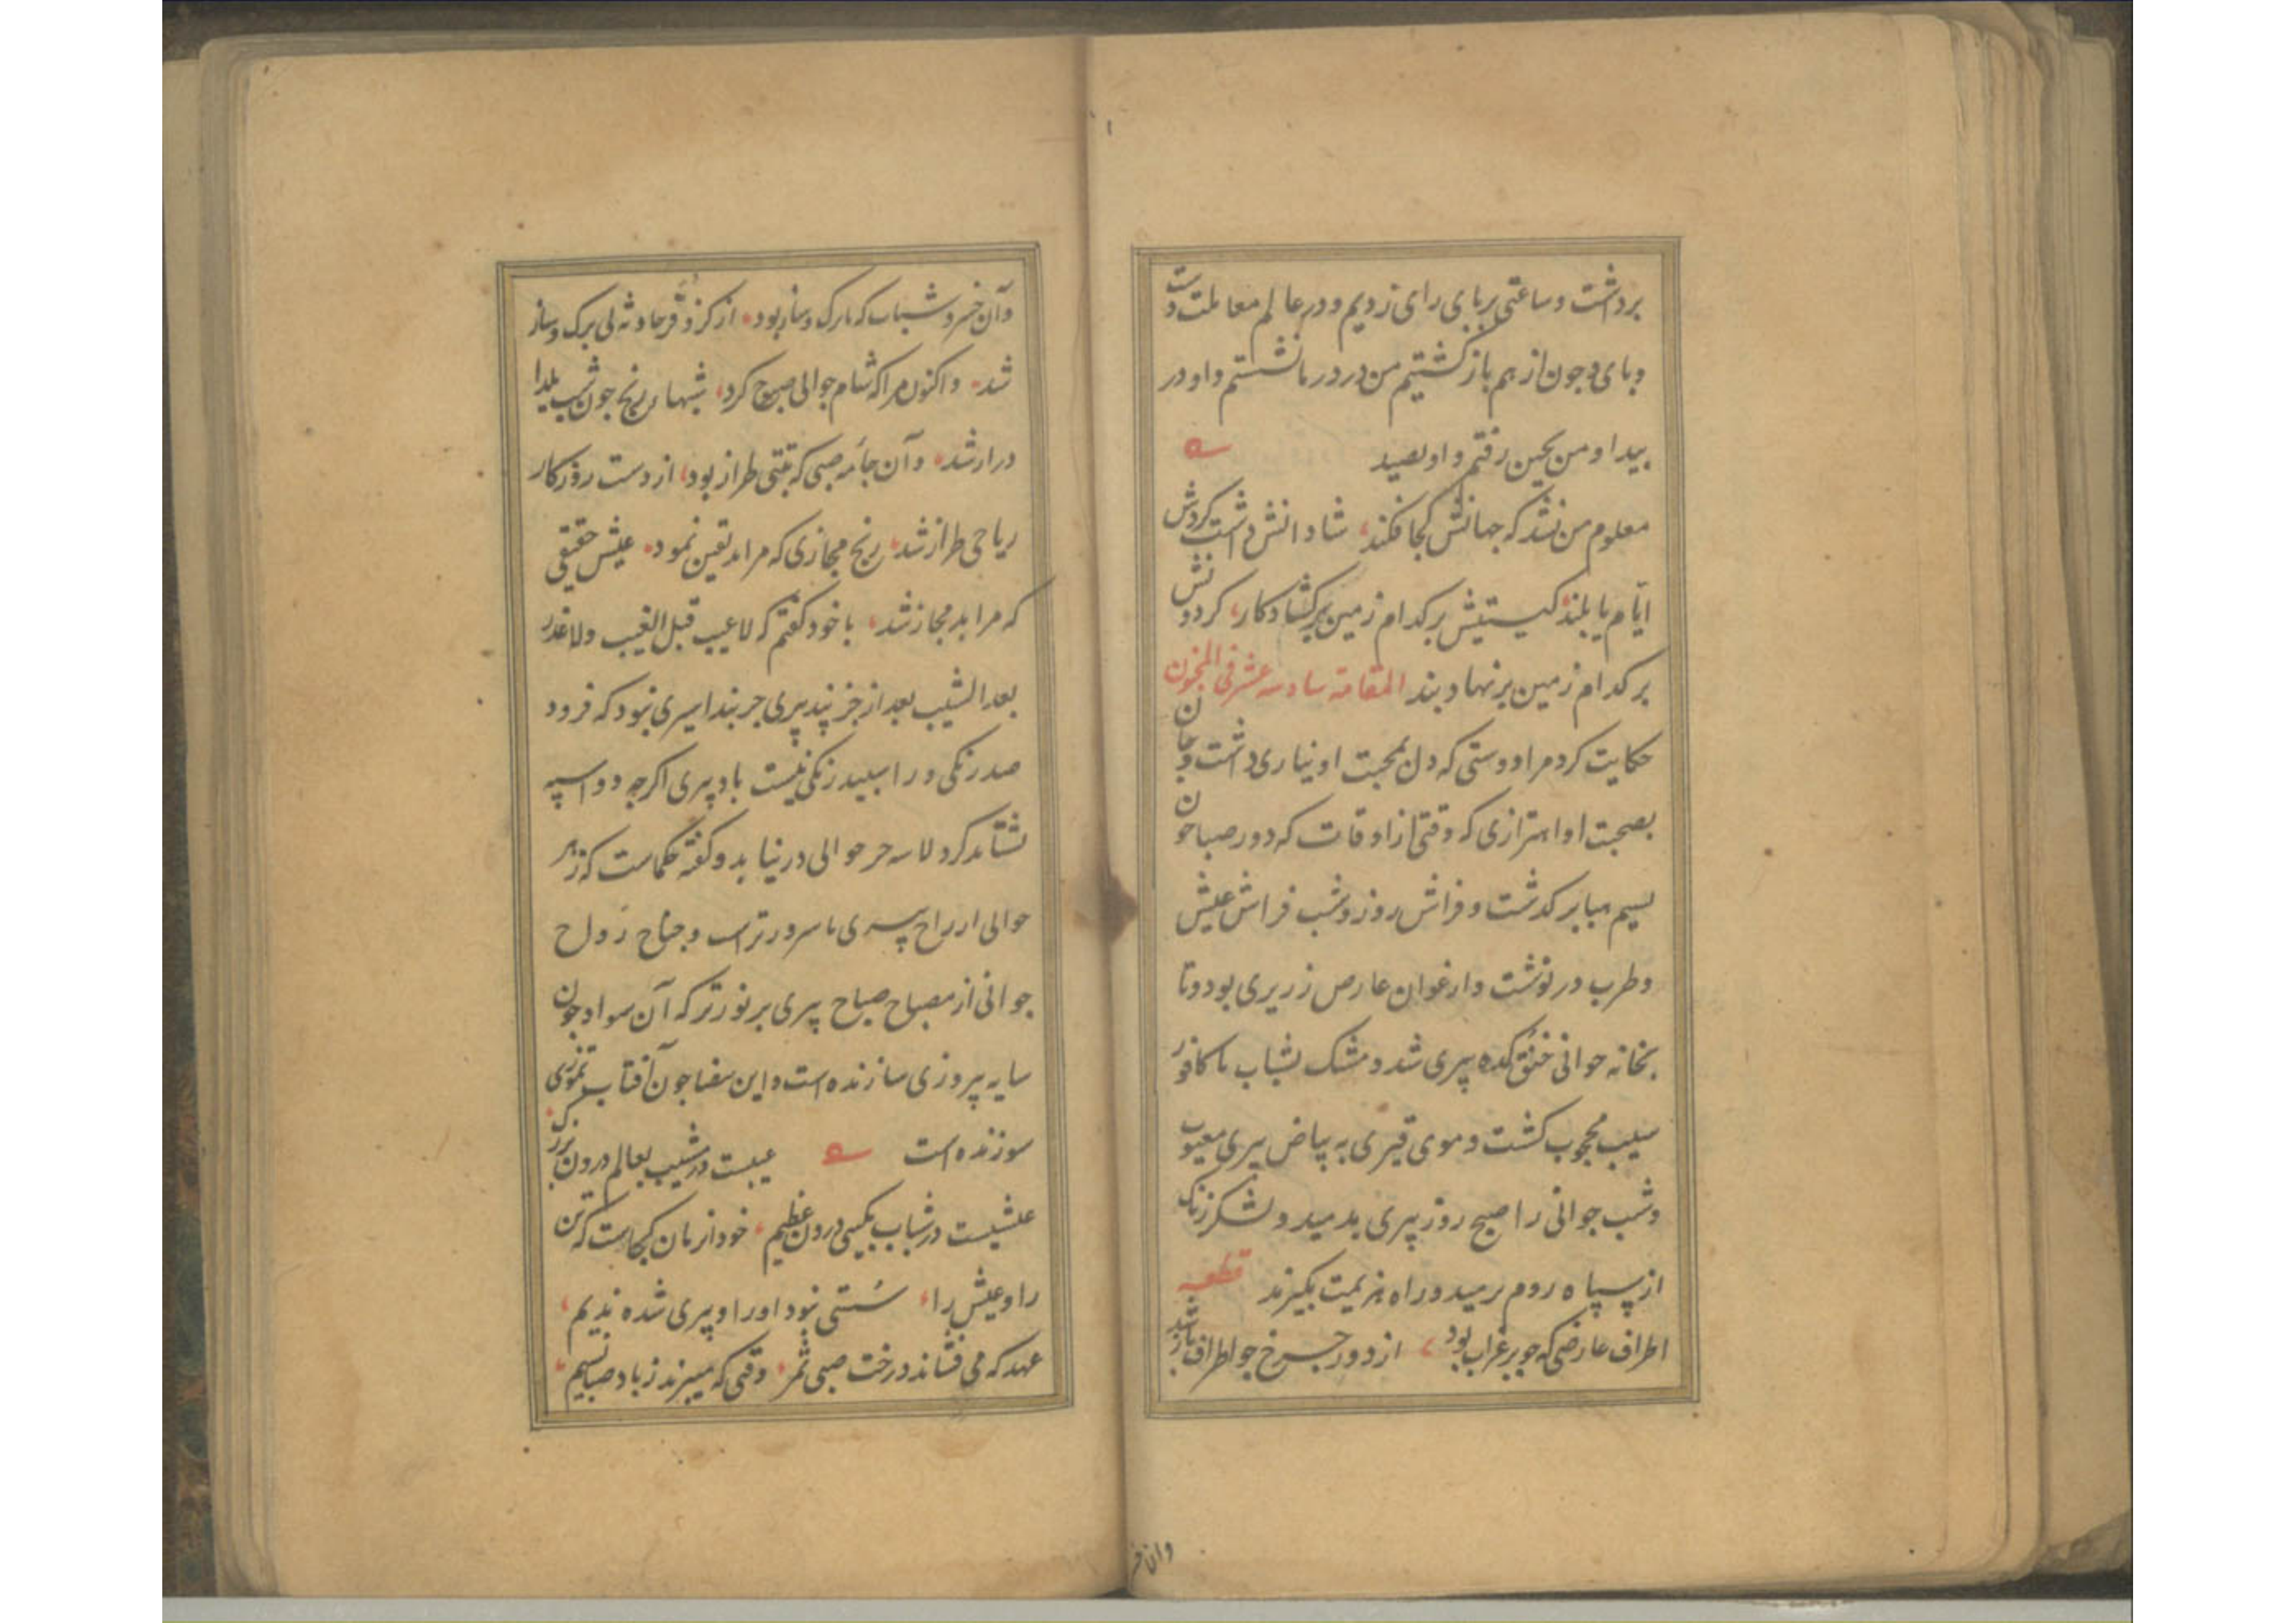 برداشت و ساعتی برپای رای زدیم و در عالم معاملت دست
و پای و جون از هم باز گشتیم من در در مانشستم و او در
بیدا و من بچین رفتم و او بصید
معلوم من نشد که جهانش کجا فکند، شادانش داشت گردش
ایام یا بلند گیستیش بر کدام زمین برگشاد کار، گردونش
بر کدام زمین بر نهاد بند المقامة سادسه عشر فی الجنون
حکایت کرد مرا دوستی که دل بمحبت او نیازی داشت و جان
بصحبت او اهتزازی که وقتی از اوقات که دور صبا چون
نسیم صبا بر گذشت و فراش روز و شب فراش عیش
و طرب در نوشت و ارغوان عارض زریری بود و تا
بخانه جوانی خنق کده پیری شد و مشک بشباب با کافور
سیب محجوب کشت و موی قیری به بیاض پیری معیوب
و شب جوانی را صبح روز پیری بدمید و لشکر زنگ
از سپاه روم برمید و راه هزیمت بگیرند قطعه
اطراف عارضی که جو پر غراب بود، از دور چرخ جو اطراف باز شد
و آن خسرو شباب که بابرک و ساز بود، از کر و فر حادثه بی برک و ساز
شد، و اکنون مرا که شام جوانی صبوح کرد، شبها برنج جون شب یلدا
دراز شد، و آن جامه صبی که تبتی طراز بود، از دست روزکار
ریاحی طراز شد، رنج مجازی که مرا بد یقین نمود، عیش حقیقی
که مرا بد مجاز شد، با خود گفتم که لاعیب قبل الغیب ولا عذر
بعد الشیب بعد از خز پند پیری جز بند اسیری نبود که فرود
صد رنگی و را سپید رنگی نیست باد پیری اکرچه دو اسپه
نشتابد کرد در نیابد و گفته حکماست که زهر
جوانی از راح پیری با سرورتر است و جناح رواح
جوانی از مصباح صباح پیری پر نورتر که آن سواد جون
سایه پروزی سازنده است و این سضا جون آفتاب تموزی
سوزنده است عیبست در مشیب بعالم درون بزرک،
عیشیست در شباب بگیتی درون عظیم، خود از مان کجاست که تن
را و عیش را، سستی نبود اورا و پیری شده ندیم،
عهد که می فشاند درخت صبی ثمر، وقتی که میبزند ز باد صبا نسیم،
وان خسر